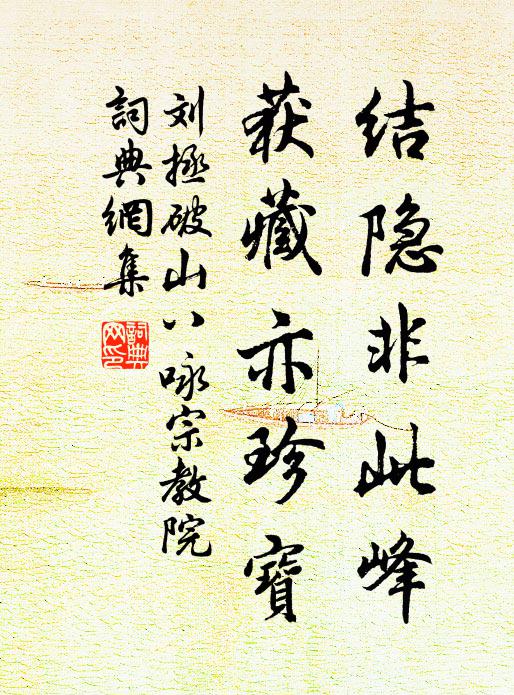 结隐非此峰
获藏亦珍寶
刘拯破山八咏宗教院
詞典網集
詞典網印